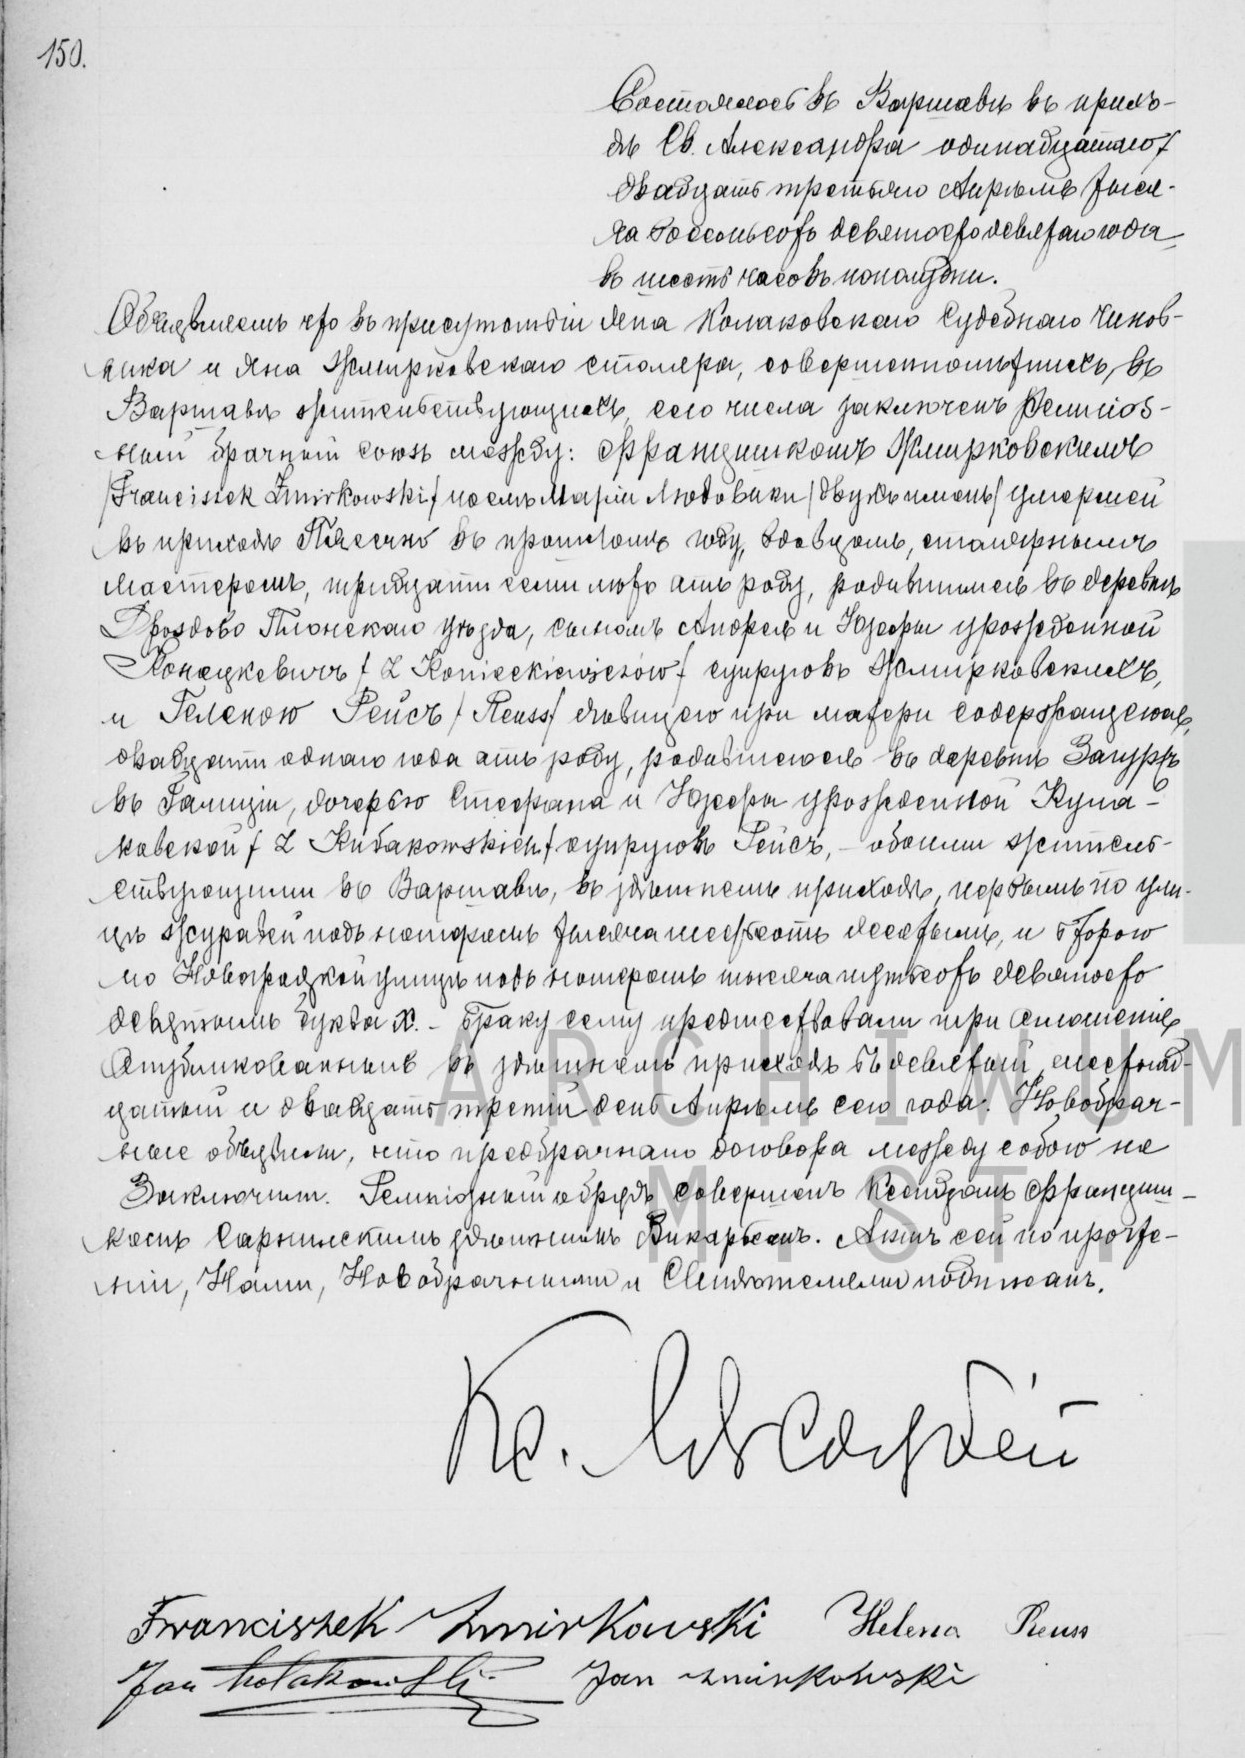 150.
Состоялось въ Варшавѣ въ прихо-
дѣ Св. Александра одинадцатаго/
двадцать третьяго Апрѣля тыся-
ча восемьсотъ девяносто девятаго года
въ шесть часовъ пополудни.
Объявляемъ что въ присутствіи Яна Колаковскаго Судебнаго Чинов-
ника и Яна Жмирковскаго столяра, совершеннолѣтнихъ, въ
Варшавѣ жительствующихъ, сего числа заключенъ Религіоз-
ный брачный союзъ между: Францишкомъ Жмирковскимъ
/Franciszek Żmirkowski/ послѣ Маріи Людовики /двухъ именъ/ умершей
въ приходѣ Пясечно въ прошломъ году, вдовцомъ, столярнымъ
мастеромъ, тридцати семи лѣтъ отъ роду, родившимся въ деревнѣ
Дроздово Плонскаго уѣзда, сыномъ Андрея и Юзефы урожденной
Конецкевичъ / z Konieckiewiczów / супруговъ Жмирковскихъ,
и Геленою Рейсъ / Reuss / дѣвицею при матери содержащеюся,
двадцати одного года отъ роду, родившеюся въ деревнѣ Загуржѣ
въ Галиціи, дочерью Стефана и Юзефы урожденной Куба-
ковской / z Kubakowskich / супруговъ Рейсъ, – обоими житель-
ствующими въ Варшавѣ, въ здѣшнемъ приходѣ, первымъ по ули-
цѣ Журавей подъ номеромъ тысяча шестьсотъ десятымъ, и второю
по Новогродзкой улицѣ подъ номеромъ тысяча пятьсотъ девяносто
девятымъ буква Х. – Браку сему предшествовали три оглашенія
опубликованныя въ здѣшнемъ приходѣ въ девятый, шестнад-
цатый и двадцать третій день Апрѣля сего года. Новобрач-
ные объявили, что предбрачнаго договора между собою не
заключили. Религіозный обрядъ совершенъ Ксендзомъ Францишк-
комъ здѣшнимъ Викаріемъ. Актъ сей по прочте-
ніи, Нами, Новобрачными и Свидѣтелями подписанъ.
Кс.
Franciszek Żmirkowski Helena Reuss
Jan Kołakowski Jan Żmirkowski
ARCHIWUM
M. ST.